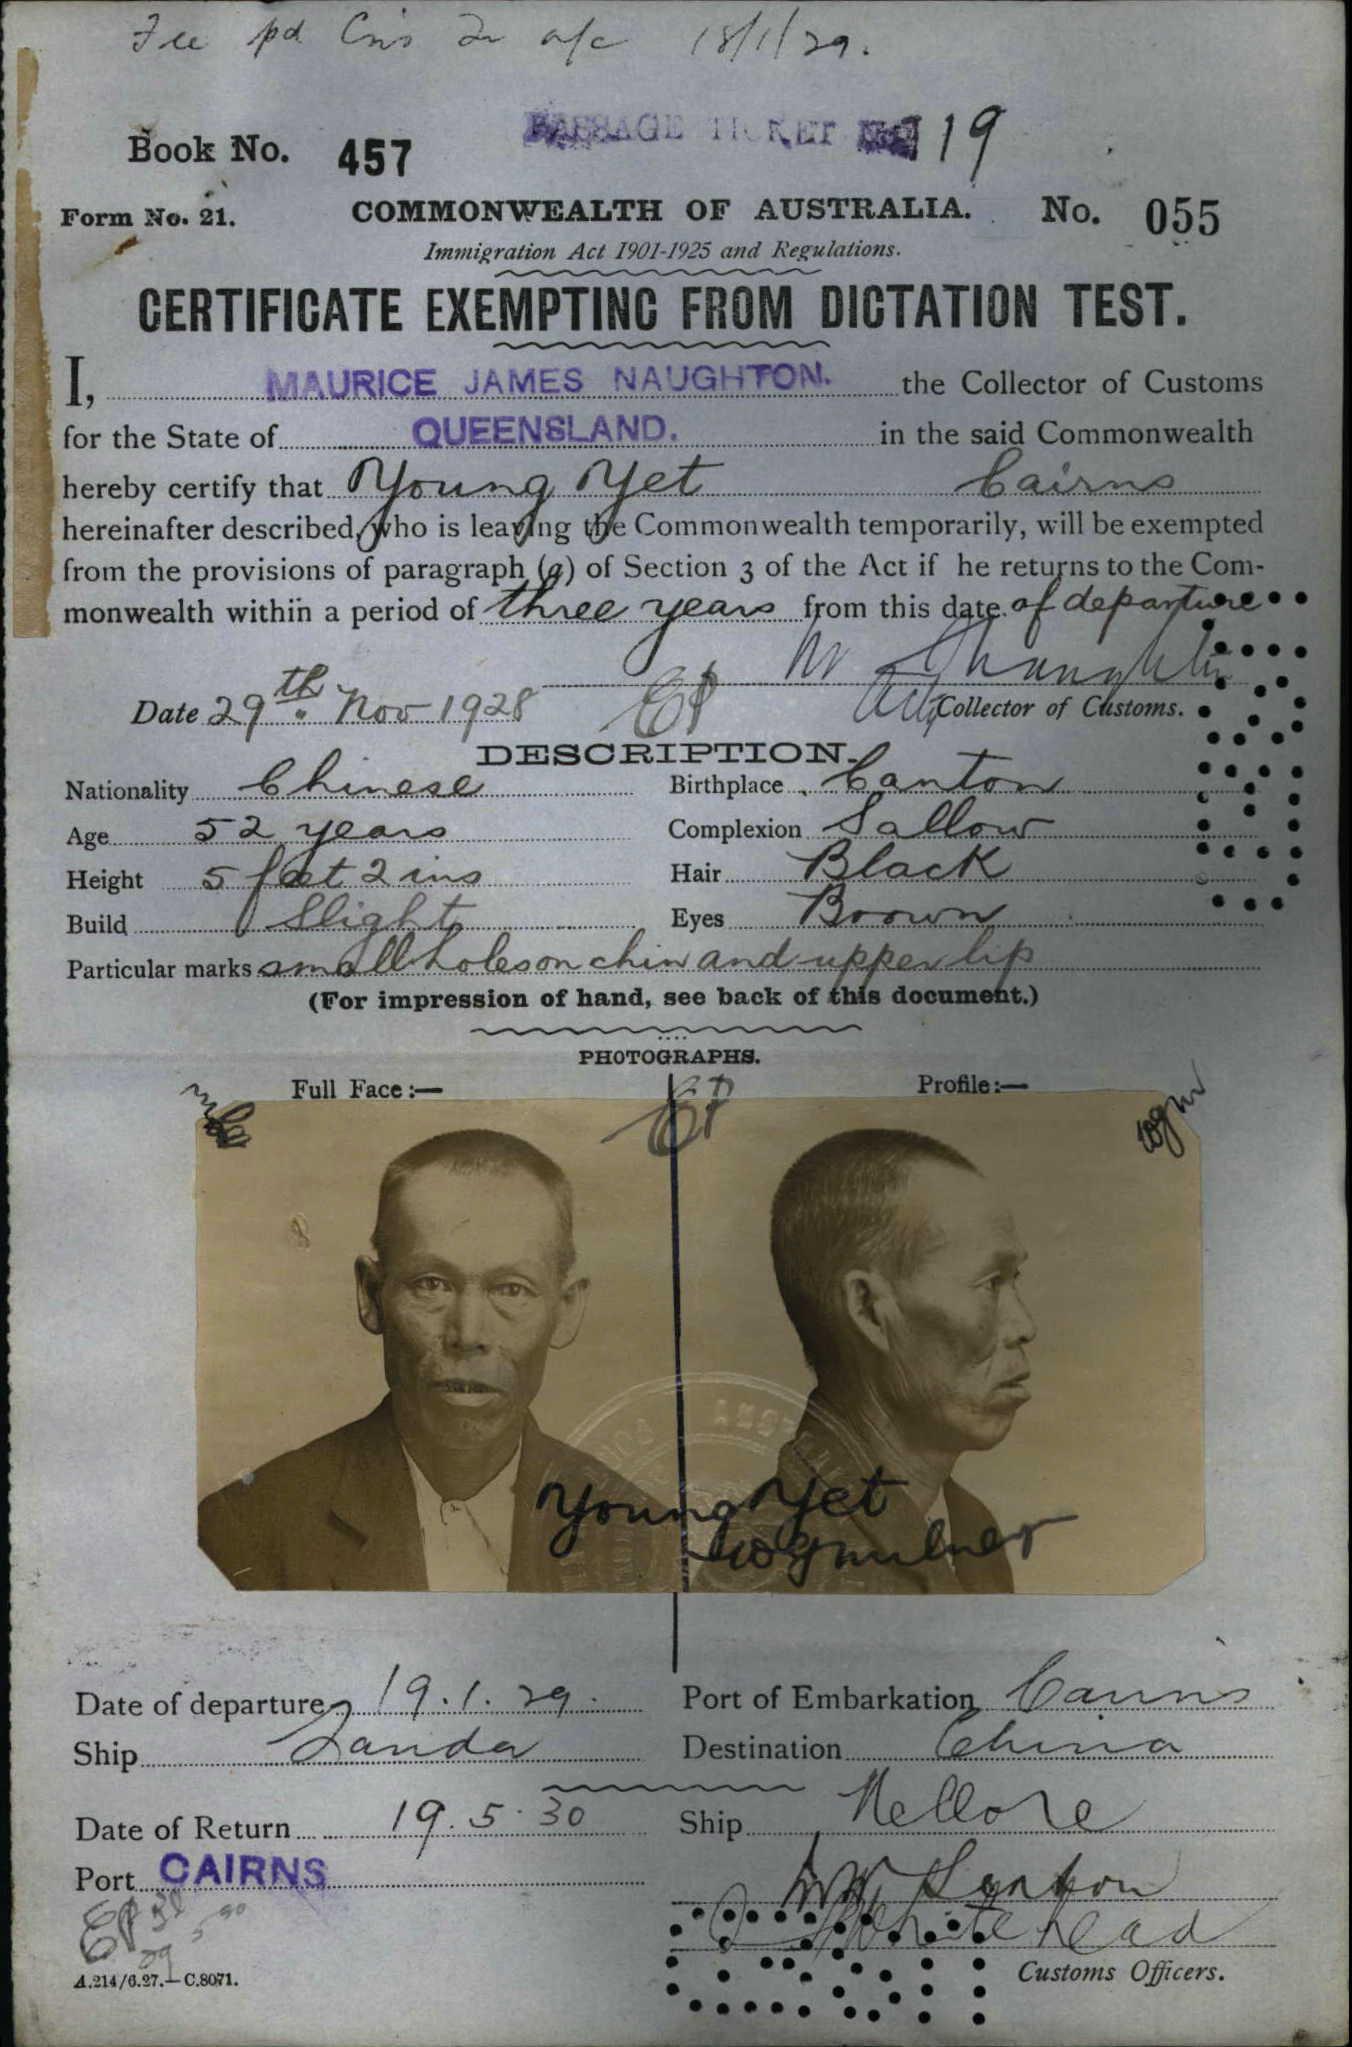 Fee pd Cns 2r a/c 18/1/29.
PASSAGE TICKET No 19
Book No. 457
Form No. 21. COMMONWEALTH OF AUSTRALIA. No. 055
Immigration Act 1901-1925 and Regulations.
CERTIFICATE EXEMPTING FROM DICTATION TEST.
I, MAURICE JAMES NAUGHTON. the Collector of Customs
for the State of QUEENSLAND. in the said Commonwealth
hereby certify that Young Yet Cairns
hereinafter described, who is leaving the Commonwealth temporarily, will be exempted
from the provisions of paragraph (a) of Section 3 of the Act if he returns to the Com-
monwealth within a period of three years from this date of departure
Date 29th Nov 1928 Actg Collector of Customs.
DESCRIPTION.
Nationality Chinese Birthplace Canton
Age 52 years Complexion Sallow
Height 5 feet 2 ins Hair Black
Build Slight Eyes Brown
Particular marks small holes on chin and upper lip
(For impression of hand, see back of this document.)
PHOTOGRAPHS.
Full Face:— Profile:—
Young Yet
WGMilner
Date of departure 19.1.29. Port of Embarkation Cairns
Ship Tanda Destination China
Date of Return 19.5.30 Ship Nellore
Port CAIRNS
Whitehead
Customs Officers.
A.214/6.27.—C.8071.